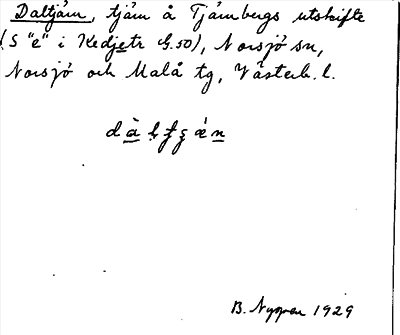 Daltjärn, tjärn å Tjärnbergs utskifte
(S "e" i Kedjetr G.50), Norsjö sn,
Norsjö och Malå tg, Västerb. l.
B. Nygren 1929